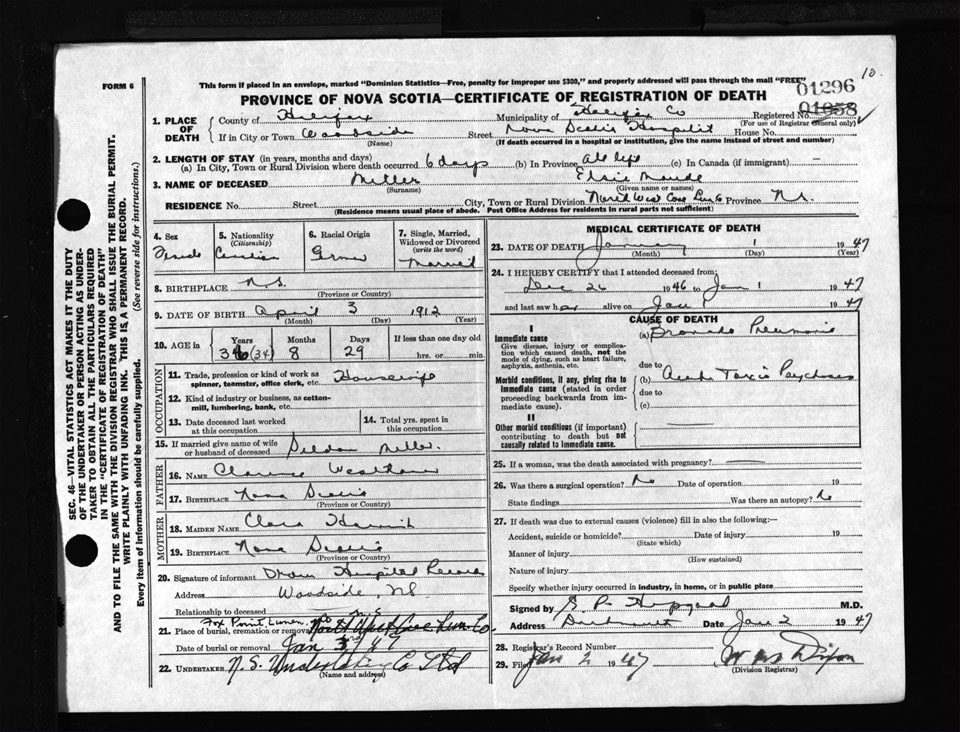 FORM 6
This form if placed in an envelope, marked "Dominion Statistics—Free, penalty for improper use $300," and properly addressed will pass through the mail "FREE"
10.
01296
PROVINCE OF NOVA SCOTIA—CERTIFICATE OF REGISTRATION OF DEATH
01058
1. PLACE OF DEATH
County of Halifax
Municipality of Halifax Co
Registered No.
(For use of Registrar General only)
If in City or Town Woodside
(Name)
Street Nova Scotia Hospital House No.
(If death occurred in a hospital or institution, give the name instead of street and number)
2. LENGTH OF STAY (in years, months and days)
(a) In City, Town or Rural Division where death occurred 6 days (b) In Province All life (c) In Canada (if immigrant) —
3. NAME OF DECEASED Miller Elsie Maude
(Surname) (Given name or names)
RESIDENCE No. Street City, Town or Rural Division North West Cove Lun Co Province N.S.
(Residence means usual place of abode. Post Office Address for residents in rural parts not sufficient)
4. Sex Female
5. Nationality (Citizenship) Canadian
6. Racial Origin German
7. Single, Married, Widowed or Divorced (write the word) Married
8. BIRTHPLACE N.S.
(Province or Country)
9. DATE OF BIRTH April 3 1912
(Month) (Day) (Year)
10. AGE in Years Months Days If less than one day old
36 (34) 8 29 hrs. or min.
OCCUPATION
11. Trade, profession or kind of work as spinner, teamster, office clerk, etc. Housewife
12. Kind of industry or business, as cotton-mill, lumbering, bank, etc.
13. Date deceased last worked at this occupation
14. Total yrs. spent in this occupation
15. If married give name of wife or husband of deceased Miller
FATHER
16. NAME Clarence
17. BIRTHPLACE Nova Scotia
(Province or Country)
MOTHER
18. MAIDEN NAME Clara
19. BIRTHPLACE Nova Scotia
(Province or Country)
20. Signature of informant From Hospital Records
Address Woodside, N.S.
Relationship to deceased
Fox Point, Lunen. N.S.
21. Place of burial, cremation or removal North West Cove Lun. Co.
Date of burial or removal Jan 3rd/47
22. UNDERTAKER N.S. Undertaking Co Ltd
(Name and address)
MEDICAL CERTIFICATE OF DEATH
23. DATE OF DEATH January 1 1947
(Month) (Day) (Year)
24. I HEREBY CERTIFY that I attended deceased from:
Dec 26 1946 to Jan 1 1947
and last saw her alive on Jan 1 1947
CAUSE OF DEATH
I
Immediate cause
Give disease, injury or complication which caused death, not the mode of dying, such as heart failure, asphyxia, asthenia, etc.
(a) Broncho Pneumonia
due to
Morbid conditions, if any, giving rise to immediate cause (stated in order proceeding backwards from immediate cause).
(b) Acute Toxic Psychosis
due to
(c)
II
Other morbid conditions (if important) contributing to death but not causally related to immediate cause.
25. If a woman, was the death associated with pregnancy?
26. Was there a surgical operation? No Date of operation 19
State findings Was there an autopsy? No
27. If death was due to external causes (violence) fill in also the following:—
Accident, suicide or homicide? Date of injury 19
(State which)
Manner of injury
(How sustained)
Nature of injury
Specify whether injury occurred in industry, in home, or in public place
Signed by M.D.
Address Dartmouth Date Jan 2 1947
28. Registrar's Record Number
29. Filed Jan 2 1947 Dixon
(Division Registrar)
SEC. 46—VITAL STATISTICS ACT MAKES IT THE DUTY
OF THE UNDERTAKER OR PERSON ACTING AS UNDERTAKER TO OBTAIN ALL THE PARTICULARS REQUIRED
IN THE "CERTIFICATE OF REGISTRATION OF DEATH"
AND TO FILE THE SAME WITH THE DIVISION REGISTRAR WHO SHALL ISSUE THE BURIAL PERMIT.
WRITE PLAINLY WITH UNFADING INK. THIS IS A PERMANENT RECORD.
Every item of information should be carefully supplied. (See reverse side for instructions.)